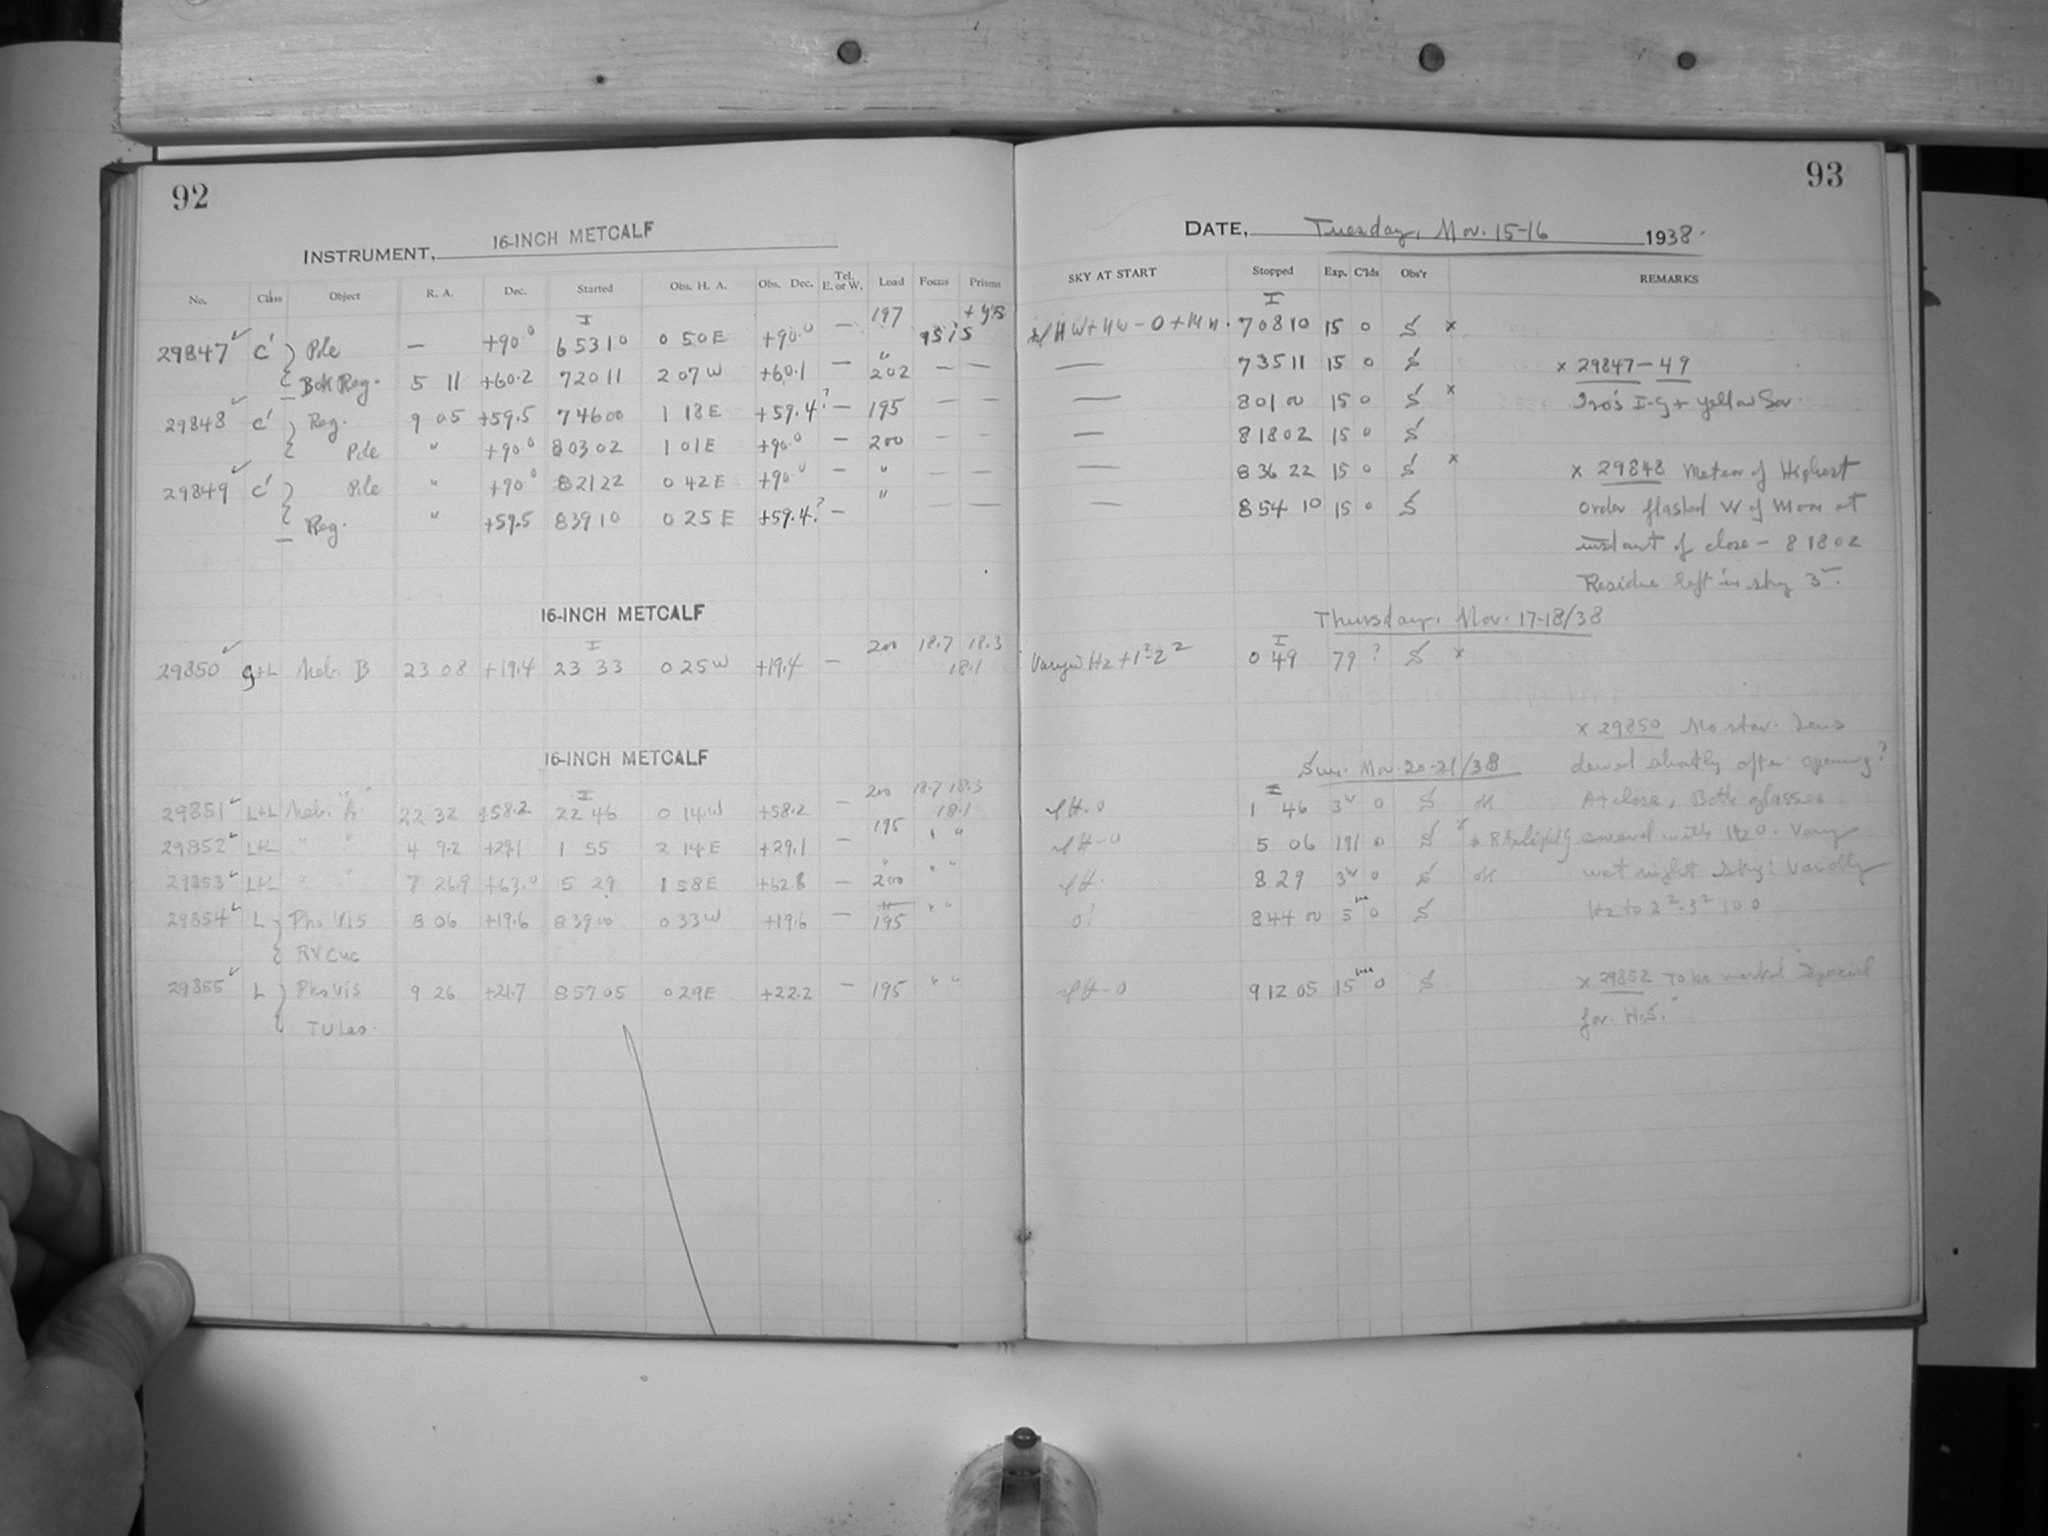 92
INSTRUMENT, 16-INCH METCALF
No. Class Object R. A. Dec. Started Obs. H. A. Obs. Dec. Tel. E. or W. Load Focus Prisms
29847 C' Pole — +90.0 6 53 10 0 50 E +90.0 — 197
Bok Reg. 5 11 +60.2 7 20 11 2 07 W +60.1 — 202 — —
29848 C' Reg. 9 05 +59.5 7 46 00 1 18 E +59.4? — 195 — —
Pole " +90.0 8 03 02 1 01 E +90.0 — 200 — —
29849 C' Pole " +90.0 8 21 22 0 42 E +90.0 — " — —
Reg. " +59.5 8 39 10 0 25 E +59.4? — " — —
16-INCH METCALF
29850 g+L Neb. B 23 08 +19.4 23 33 0 25 W +19.4 — 200 18.7 18.3 18.1
16-INCH METCALF
29851 L+L Neb. "A" 22 32 +58.2 22 46 0 14 W +58.2 — 200 18.7 18.3 18.1
29852 L+L " " 4 9.2 +29.1 1 55 2 14 E +29.1 — 195 " "
29853 L+L " " 7 26.9 +63.0 5 29 1 58 E +62.8 — 200 " "
29854 L Pho Vis 8 06 +19.6 8 39 00 0 33 W +19.6 — 195 " "
RV Cnc
29855 L Pho Vis 9 26 +21.7 8 57 05 0 29 E +22.2 — 195 " "
TU Leo.
93
DATE, Tuesday, Nov. 15-16 1938.
SKY AT START Stopped Exp. C'lds Obs'r REMARKS
7 08 10 15 0 S x
— 7 35 11 15 0 S x 29847-49
— 8 01 00 15 0 S x I-G + yellow
— 8 18 02 15 0 S
— 8 36 22 15 0 S x x 29848 Meteor of Highest
— 8 54 10 15 0 S order flashed W of Moon at
instant of close - 8 18 02
Residue left in sky
Thursday, Nov. 17-18/38
Hz + 1²-2² 0 49 79 ? S x
x 29850 No star. Lens
Sun. Nov. 20-21/38 dewed shortly after opening?
1 46 0 S ok At close, Both glasses
5 06 191 0 S x covered with H2O. Very
8 29 0 S ok wet night Sky:
8 44 00 5 0 S Hz to 2²-3² 100
9 12 05 15 0 S x 29852 To be marked "Special
for H.S."